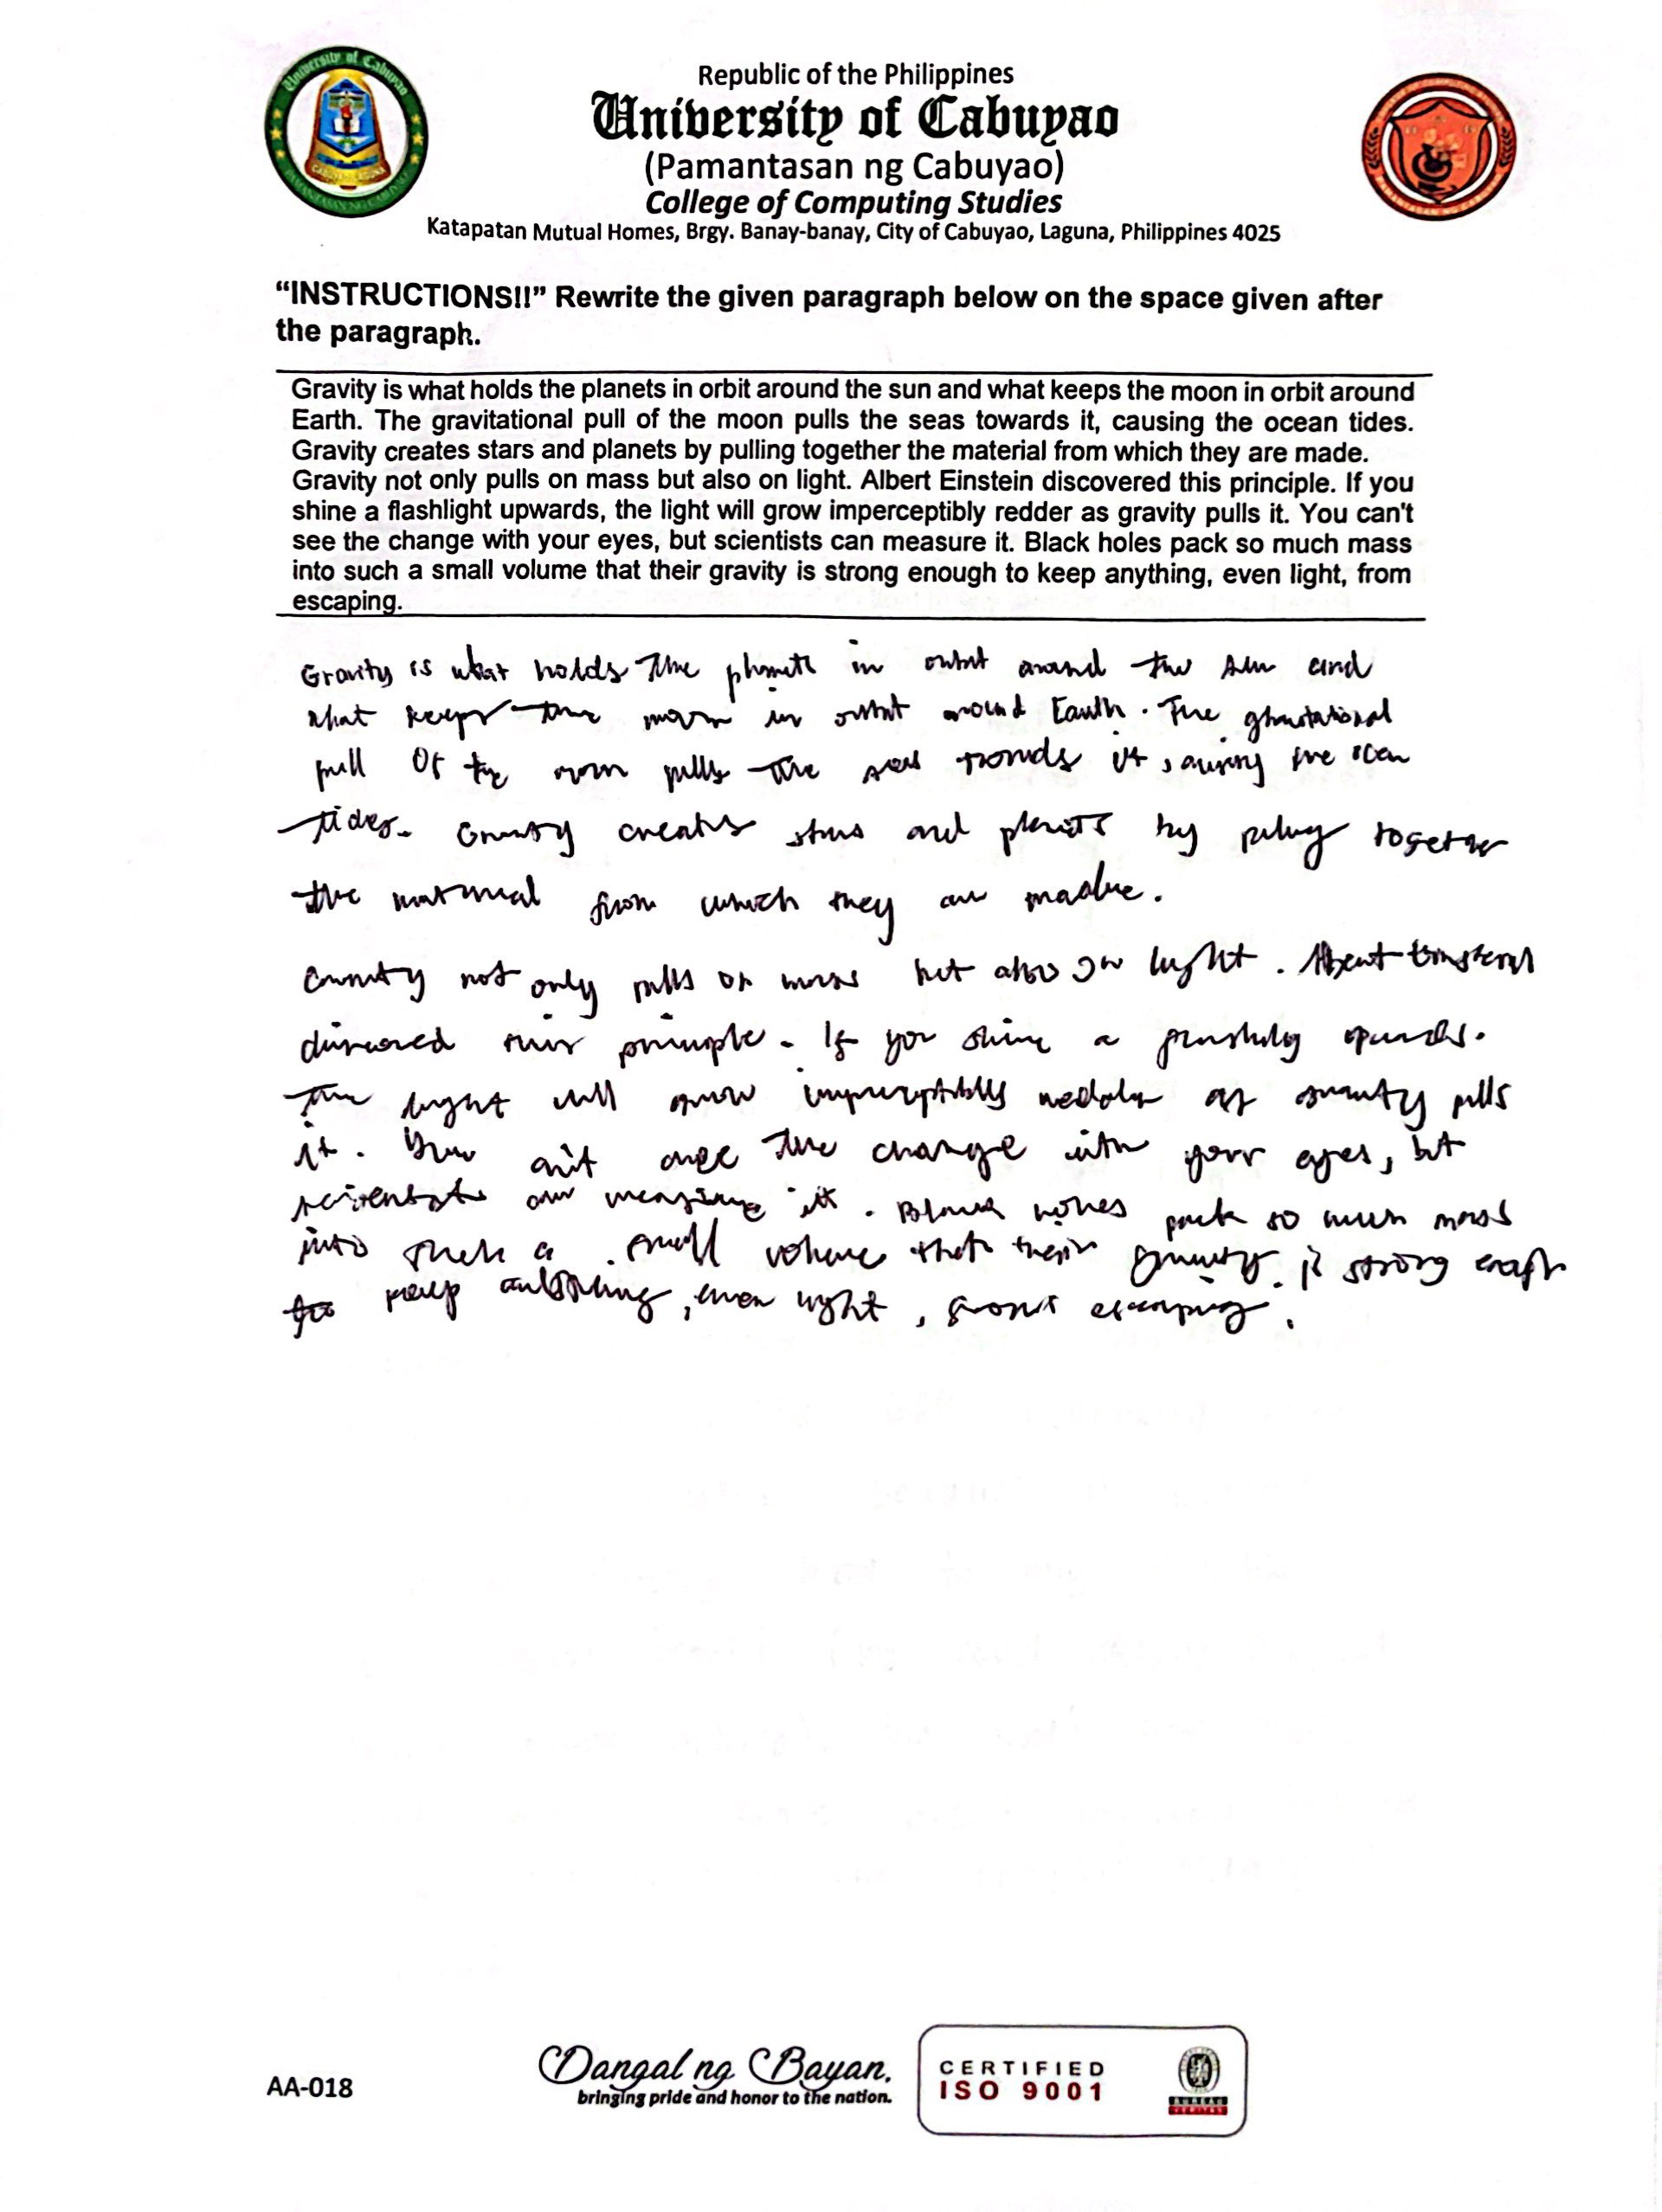 University of Cabuyao
PAMANTASAN NG CABUYAO
Republic of the Philippines
University of Cabuyao
(Pamantasan ng Cabuyao)
College of Computing Studies
Katapatan Mutual Homes, Brgy. Banay-banay, City of Cabuyao, Laguna, Philippines 4025
“INSTRUCTIONS!!” Rewrite the given paragraph below on the space given after
the paragraph.
Gravity is what holds the planets in orbit around the sun and what keeps the moon in orbit around
Earth. The gravitational pull of the moon pulls the seas towards it, causing the ocean tides.
Gravity creates stars and planets by pulling together the material from which they are made.
Gravity not only pulls on mass but also on light. Albert Einstein discovered this principle. If you
shine a flashlight upwards, the light will grow imperceptibly redder as gravity pulls it. You can't
see the change with your eyes, but scientists can measure it. Black holes pack so much mass
into such a small volume that their gravity is strong enough to keep anything, even light, from
escaping.
Gravity is what holds the planets in orbit around the sun and
what keeps the moon in orbit around Earth. The gravitational
pull of the moon pulls the seas it, the
tides. Gravity creates stars and planets by together
the material from which they are made.
Gravity not only pulls on mass but also on light.
this principle. If you shine a
The light will grow imperceptibly as gravity pulls
it. You see the change with your eyes, but
it. Black holes pack so much mass
into such a small volume that their gravity is strong
keep, even light, from escaping.
AA-018
Dangal ng Bayan.
bringing pride and honor to the nation.
CERTIFIED
ISO 9001
BUREAU
VERITAS